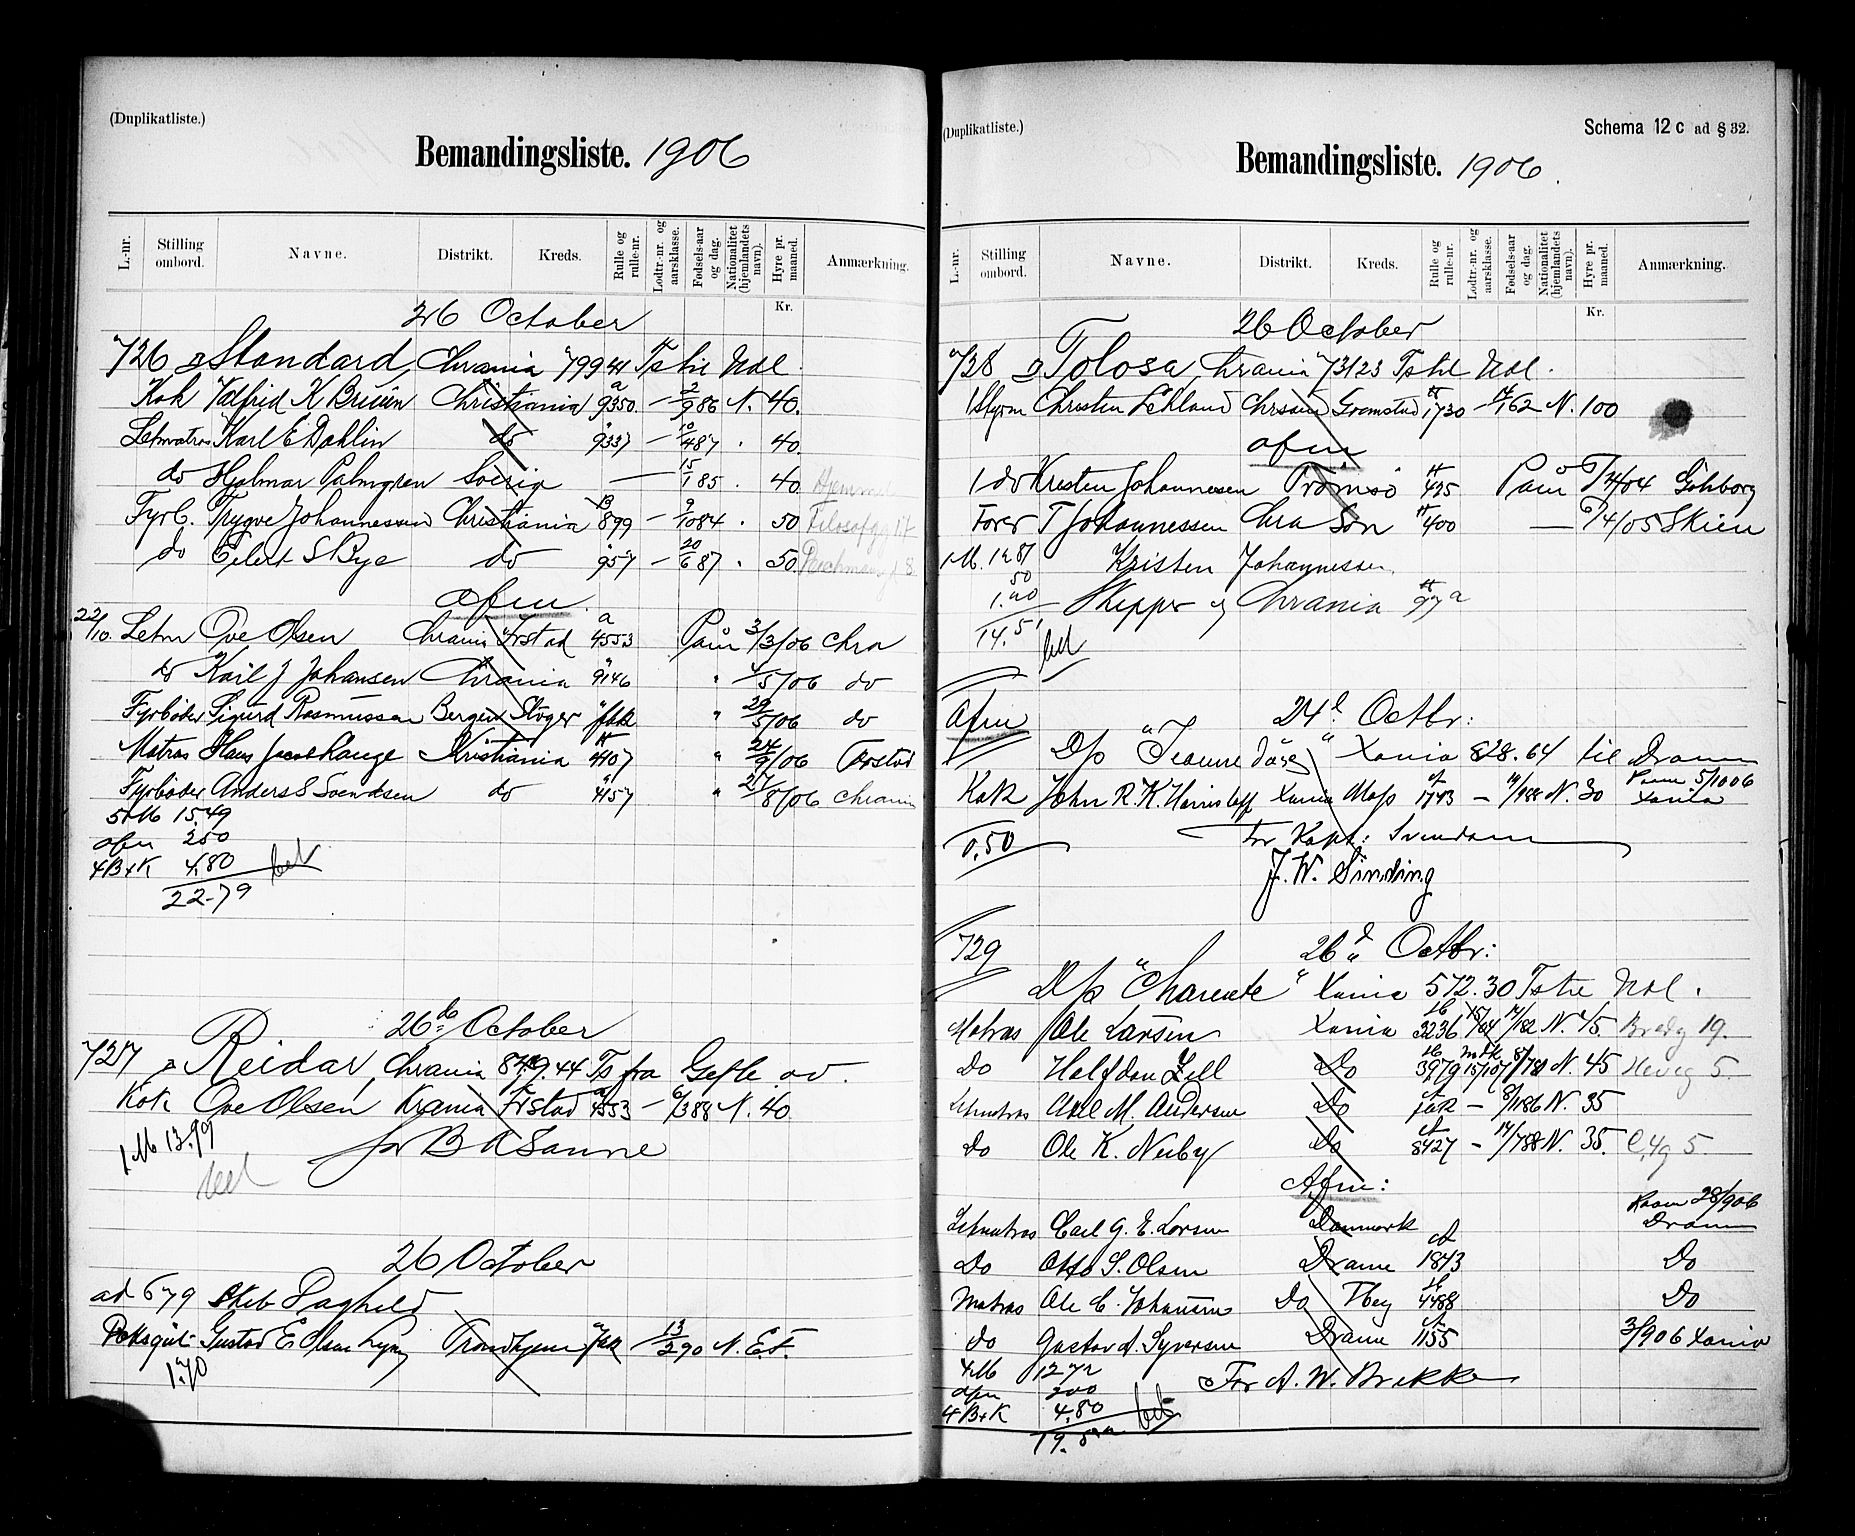 (Duplikatliste.)
Bemandingsliste. 1906
L.-nr. Stilling ombord. Navne. Distrikt. Kreds. Rulle og rulle-nr. Lodtr.-nr. og aarsklasse. Fødsels-aar og dag. Nationalitet (hjemlandets navn). Hyre pr. maaned. Anmærkning.
Kr.
26 October
726 Standard, Chrania 799 41 Tstie Nol.
Kok Valfrid K Bruün Christiania a 9350 — 2/9 86 N. 40.
Letmatros Karl E Dahlin do " 9337 — 10/4 87 " 40.
do Hjalmar Palmgren Sverig — 15/1 85 . 40
Fyrb. Trygve Johannessen Christiania B 899 — 9/10 84 . 50
do Eilert S Bye do " 957 — 20/6 87 . 50
Afm.
22/10. Letm Ove Olsen Chrania Frstad a 4553 Paam 3/3/06 Chra
do Karl J Johansen Chrania " 9146 " 1/5/06 do
Fyrbøder Sigurd Rasmussen Bergen " fbk " 29/5/06 do
Matros Hans Jacob Lange Kristiania H 4107 " 24/9/06
Fyrbøder Anders S Svendsen do " 4157 " 27/8/06 Chrania
5 M 15.49
afm 2.50
4 B+K 4.80 bet
22.79
26de October
727 Reidar, Chrania 879.44 Ts fra Gefle. av.
Kok Ove Olsen Krania Frstad a 4553 — 6/3 88 N. 40.
1 M 13.99 for B A Sanne
bet
26 October
ad 679 Skib Dagheld
Dæksgut Gustav E Olsen Lyng Trondhjem " fbk — 13/2 90 N. E.F.
1.70
(Duplikatliste.)
Schema 12 c ad § 32.
Bemandingsliste. 1906.
L.-nr. Stilling ombord. Navne. Distrikt. Kreds. Rulle og rulle-nr. Lodtr.-nr. og aarsklasse. Fødsels-aar og dag. Nationalitet (hjemlandets navn). Hyre pr. maaned. Anmærkning.
Kr.
26 October
728 Tolosa, Chrania 73123 Tstil Nol.
1 Styrm Christen Lekland Chrsand Grømstad H 1730 — 62 N. 100
afm
1 do Kresten Johannesen Tromsö H 425 Paam Göteborg
Fører T Johannessen Chra Søn H 400 — 6/4/05 Skien
1 M. 12.81 Kristen Johannessen.
50
1.20 Skipper og Chrania H 97 a
14.51
bet
Afm 24d Octbr:
D/s "Jeanne " Xania 828.64 til Dramm
Kok John R. K. Xania Moss A 1743 — 88 N. 30 Paam 5/1006 Xania
0.50 for Kapt: Svendsen
J. W. Sinding
729 26d Octbr:
D/s "Charente" Xania 572.30 Tstie Nol.
Matros Ole Larsen Xania 3236 82 N. 45 Bredg 19.
Do Halfdan Zell Do 3979 N. 45 5.
Letmatros Axel M. Andersen Do fbk — 86 N. 35
do Ole K. Neeby Do A 8427 — 14/7 88 N. 35. 5.
Afm:
Letmatros Carl G. E. Lorsen Danmark Paam 28/906 Dramm
Do Otto S. Olsen Dramm A 1843 Do
Matros Ole C. Johansen Do Tbeg 4488 Do
Do Gustav A. Syversen Dramm A 1155 3/906 Xania
4 M 12.72 For A. W. Brekke
afm 2.00
4 B+K 4.80 bet
19.52